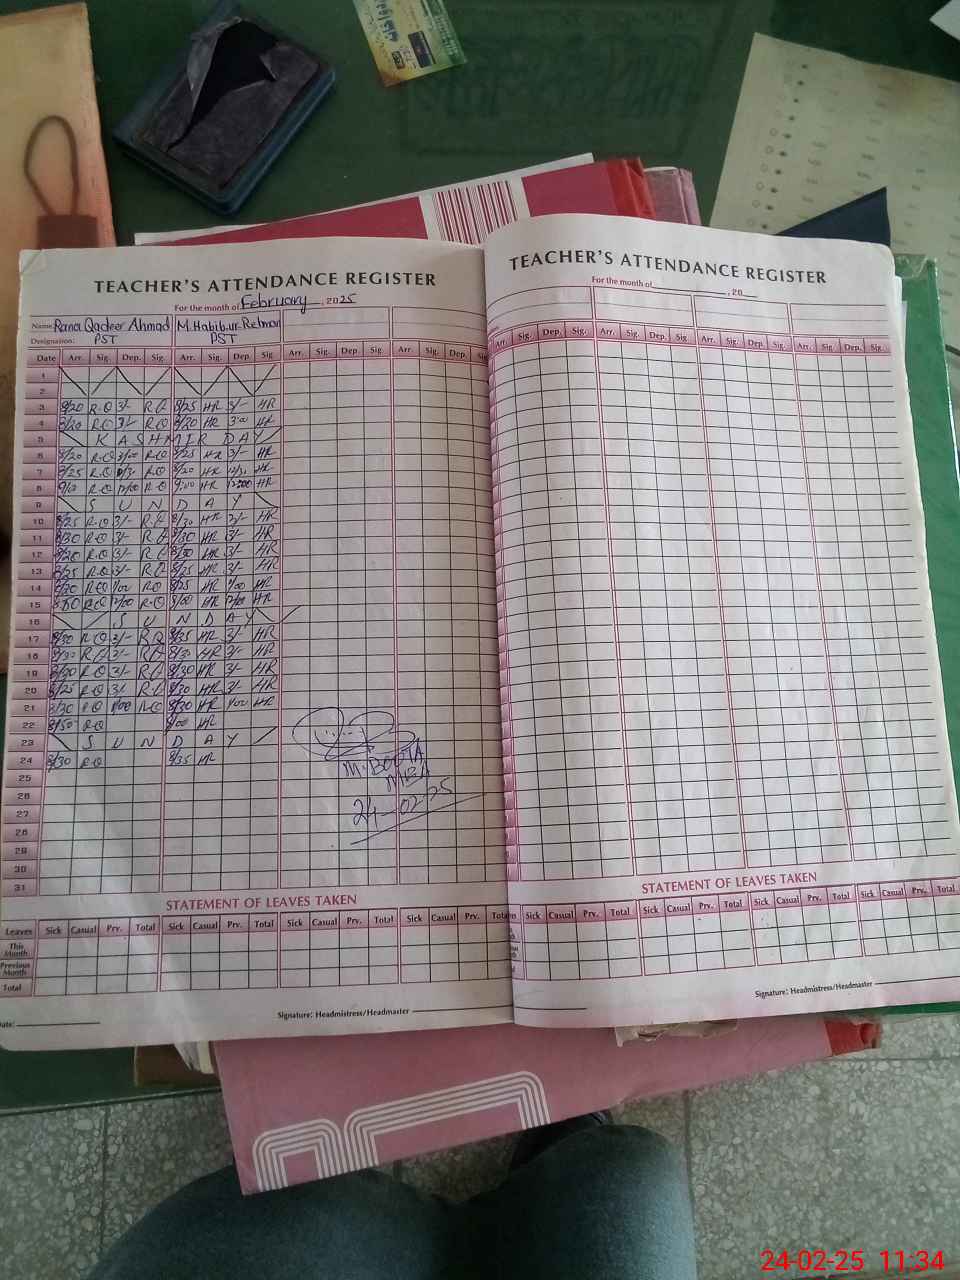 TEACHER'S ATTENDANCE REGISTER
For the month of February, 2025
Name: Rana Qadeer Ahmad M. Habib.ur.Rehman
Designation: PST PST
Date Arr. Sig. Dep. Sig. Arr. Sig. Dep. Sig Arr. Sig. Dep. Sig. Arr. Sig. Dep. Sig.
1
2
3 8/20 R.Q 3/- R.Q 8/25 HR 3/- HR
4 8/20 R.Q 3/- R.Q 8/20 HR 3:00 HR
5 KASHMIR DAY
6 8/20 R.Q 3/00 R.Q 8/25 HR 3/- HR
7 8/25 R.Q R.Q 8/20 HR HR
8 9/00 R.Q 12/00 R.Q 9:00 HR 12:00 HR
9 SUNDAY
10 8/25 R.Q 3/- R.Q 8/30 HR 3/- HR
11 8/30 R.Q 3/- R.Q 8/30 HR 3/- HR
12 8/20 R.Q 3/- R.Q 8/30 HR 3/- HR
13 8/25 R.Q 3/- R.Q 8/25 HR 3/- HR
14 8/20 R.Q 1/00 R.Q 8/25 HR 1/00 HR
15 R.Q 12/00 R.Q HR 12/00 HR
16 SUNDAY
17 8/30 R.Q 3/- R.Q 8/35 HR 3/- HR
18 8/30 R.Q 3/- R.Q 8/30 HR 3/- HR
19 8/30 R.Q 3/- R.Q 8/30 HR 3/- HR
20 8/25 R.Q 3/- R.Q 8/30 HR 3/- HR
21 8/30 R.Q 1/00 R.Q 8/30 HR 1/00 HR
22 8/50 R.Q HR
23 SUNDAY
24 8/30 R.Q 8/35 HR
25
26
27
28
29
30
31
M. BOOTA
MEA
24-02-25
STATEMENT OF LEAVES TAKEN
Leaves Sick Casual Prv. Total Sick Casual Prv. Total Sick Casual Prv. Total Sick Casual Prv. Total
This Month
Previous Month
Total
Signature: Headmistress/Headmaster
Date:
TEACHER'S ATTENDANCE REGISTER
For the month of , 20
Arr. Sig. Dep. Sig. Arr. Sig. Dep. Sig. Arr. Sig. Dep. Sig. Arr. Sig. Dep. Sig.
STATEMENT OF LEAVES TAKEN
Sick Casual Prv. Total Sick Casual Prv. Total Sick Casual Prv. Total Sick Casual Prv. Total
Signature: Headmistress/Headmaster
24-02-25 11:34